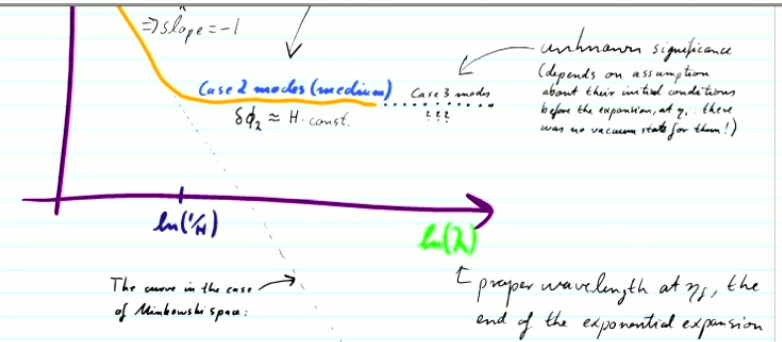 ⇒ slope = -1
Case 2 modes (medium)
δϕ₂ ≈ H · const.
Case 3 modes
? ? ?
unknown significance
(depends on assumption
about their initial conditions
before the expansion, at ηᵢ : there
was no vacuum state for them!)
ln(1/H)
ln(λ)
The curve in the case
of Minkowski space:
proper wavelength at η_f, the
end of the exponential expansion